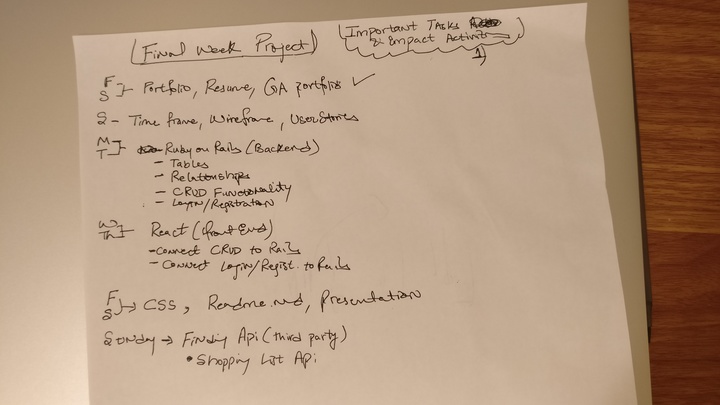 Final Week Project
Important Tasks
& Impact Activit
1)
F
S
- Portfolio, Resume, GA portfolio ✓
S - Time frame, Wireframe, User Stories
M
T
- Ruby on Rails (Backend)
- Tables
- Relationships
- CRUD Functionality
- Login/Registration
W
Th
React (Front End)
- Connect CRUD to Rails
- Connect Login/Regist. to Rails
F
S
→ CSS, Readme.md, Presentation
Sunday → Finding Api (third party)
• Shopping List Api